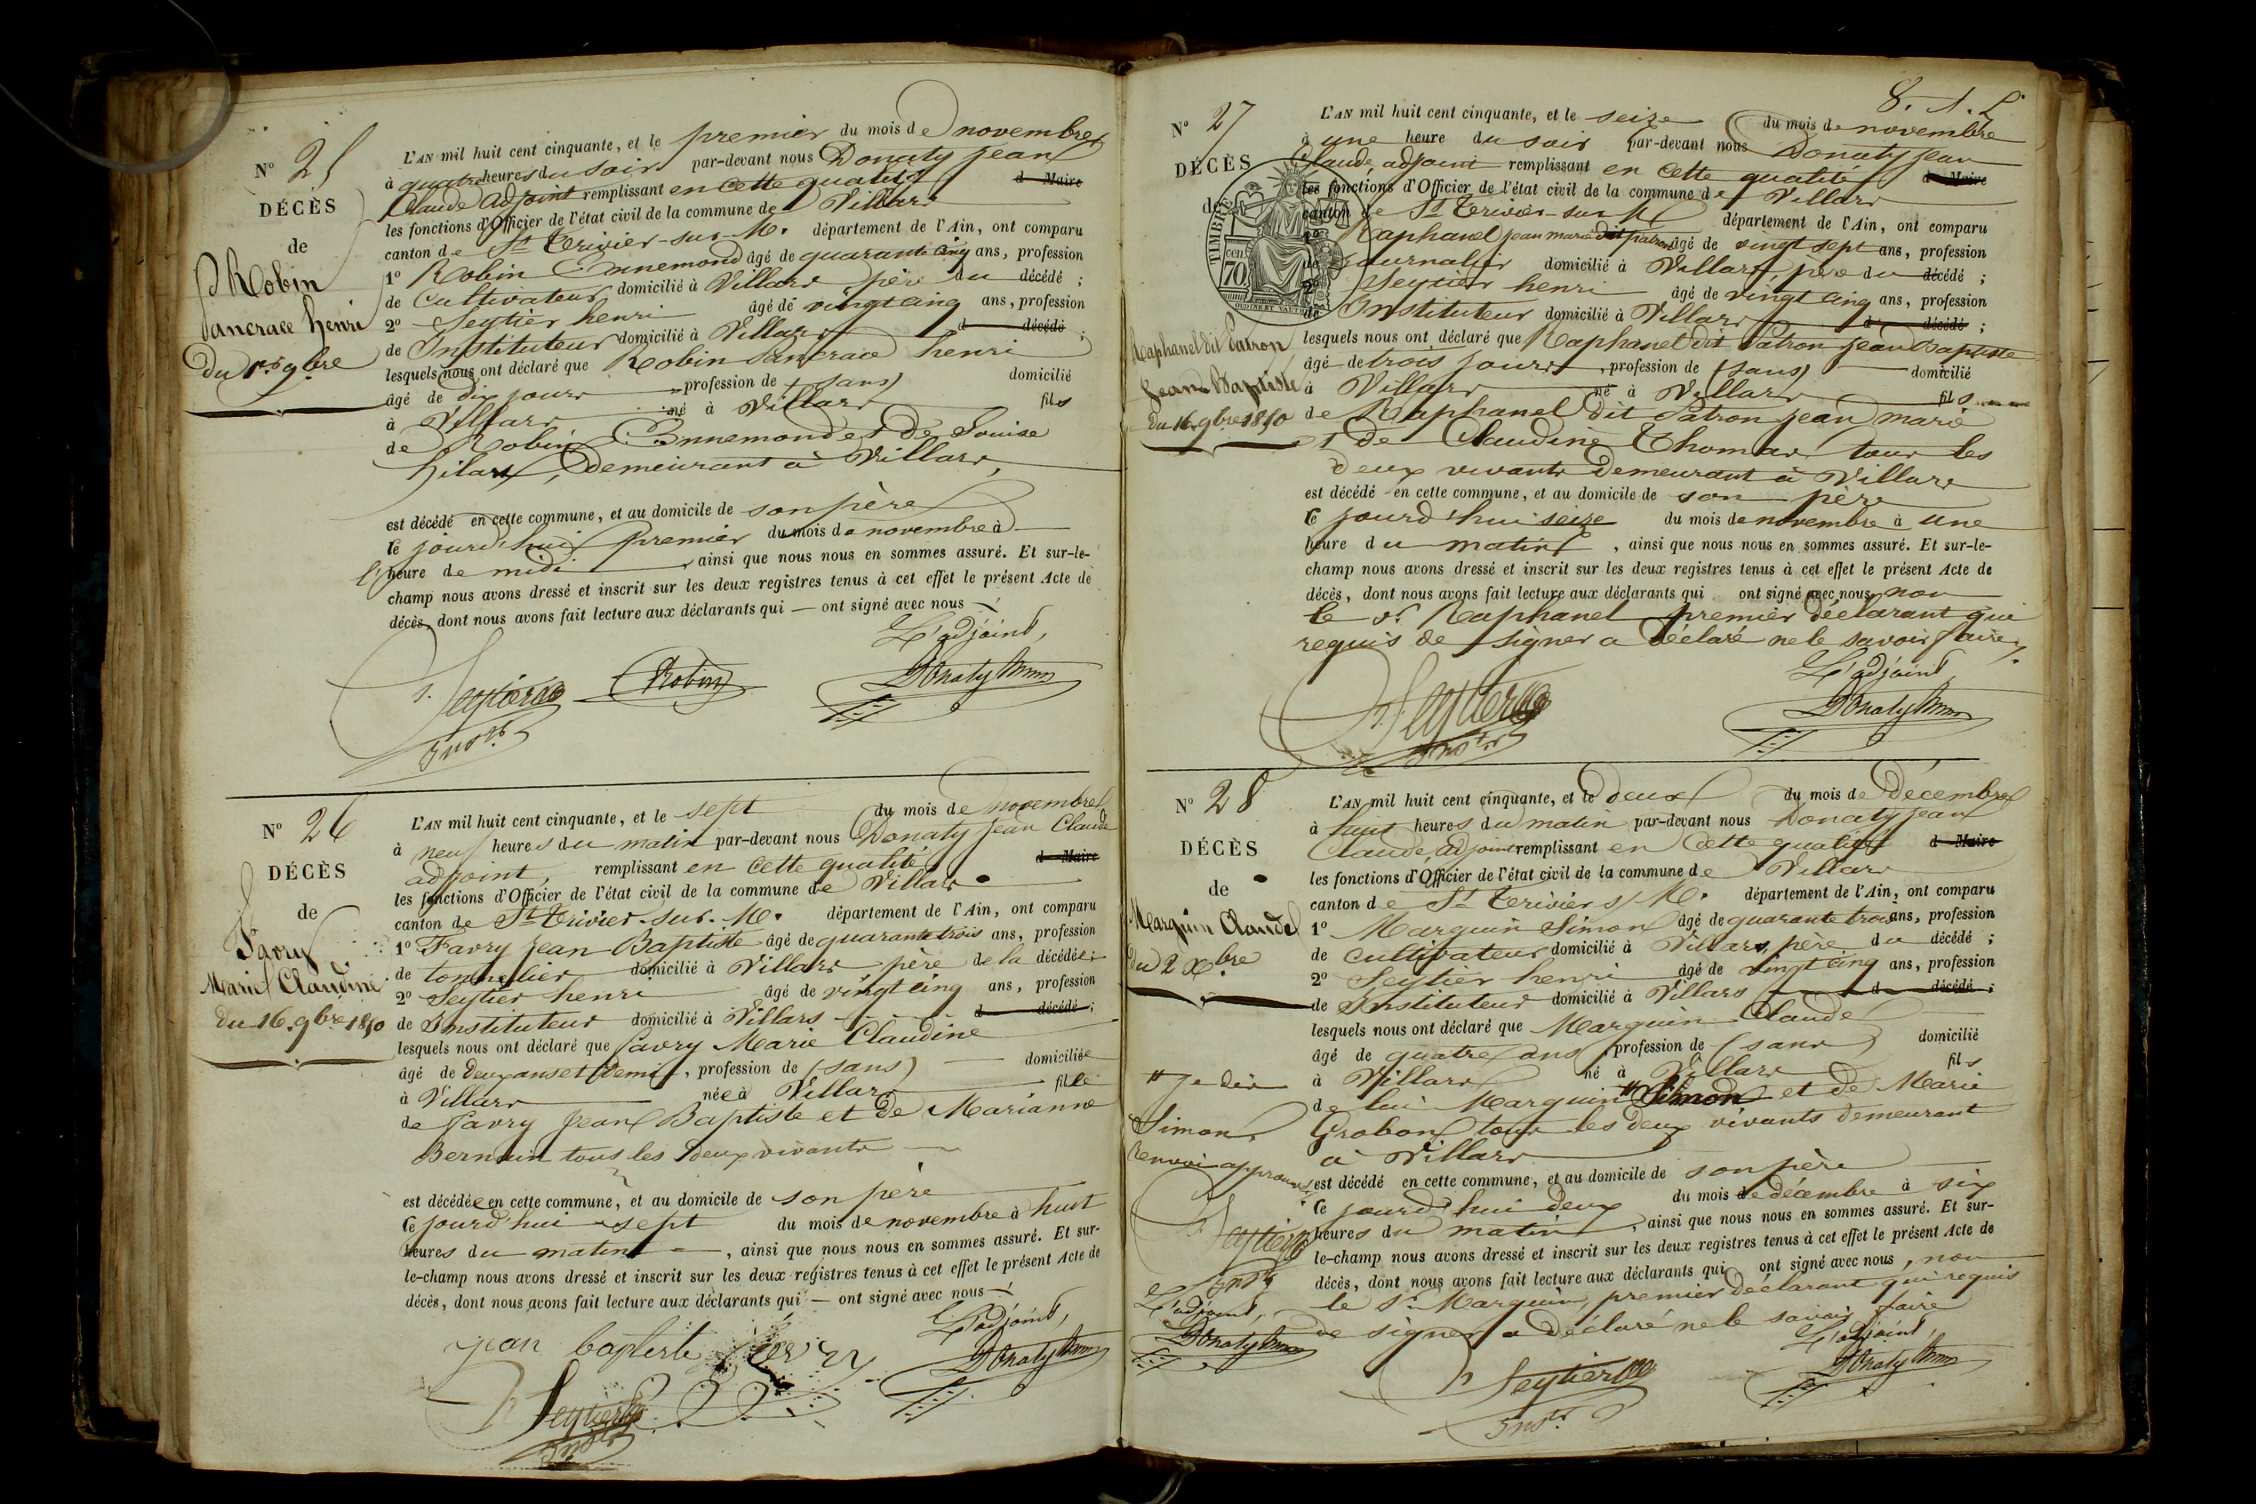 N° 25
DÉCÈS
de
Robin
Pancrace henri
Du 1er 9bre
L'AN mil huit cent cinquante, et le premier du mois de novembre
à quatre heures du soir par-devant nous Donaty jean
Claude adjoint remplissant en cette qualité d Maire
les fonctions d'Officier de l'état civil de la commune de Villars
canton de St Trivier-sur-M. département de l'Ain, ont comparu
1° Robin Ennemond âgé de quarante cinq ans, profession
de Cultivateur domicilié à Villars père du décédé ;
2° Seytier henri âgé de vingt cinq ans, profession
de Instituteur domicilié à Villars d décédé ;
lesquels nous ont déclaré que Robin Pancrace henri
âgé de dix jours profession de (sans) domicilié
à Villars né à Villars fils
de Robin Ennemond et de Louise
hilars, demeurant à Villars,
est décédé en cette commune, et au domicile de son père
le jourd'hui premier du mois de novembre à
l' heure de midi , ainsi que nous nous en sommes assuré. Et sur-le-
champ nous avons dressé et inscrit sur les deux registres tenus à cet effet le présent Acte de
décès, dont nous avons fait lecture aux déclarants qui — ont signé avec nous
L'adjoint,
h. Seytier Robin Donaty
Instr
N° 26
DÉCÈS
de
Favry
Marie Claudine
du 16. 9bre 1850
L'AN mil huit cent cinquante, et le sept du mois de novembre
à neuf heures du matin par-devant nous Donaty jean Claude
adjoint, remplissant en cette qualité d Maire
les fonctions d'Officier de l'état civil de la commune de Villars
canton de St Trivier-sur-M. département de l'Ain, ont comparu
1° Favry jean Baptiste âgé de quarante trois ans, profession
de tonnelier domicilié à Villars père de la décédée ;
2° Seytier henri âgé de vingt cinq ans, profession
de Instituteur domicilié à Villars d décédé ;
lesquels nous ont déclaré que favry Marie Claudine
âgé de deux ans et demi , profession de (sans) domiciliée
à Villars née à Villars fille
de favry jean Baptiste et de Marianne
Bernuin tous les deux vivants
est décédée en cette commune, et au domicile de son père
le jourd'hui sept du mois de novembre à huit
heures du matin , ainsi que nous nous en sommes assuré. Et sur-
le-champ nous avons dressé et inscrit sur les deux registres tenus à cet effet le présent Acte de
décès, dont nous avons fait lecture aux déclarants qui — ont signé avec nous
L'adjoint,
jean baptiste favry Donaty
h Seytier
Instr
8.
N° 27
DÉCÈS
de
TIMBRE
70
Raphanel dit Patron
Jean Baptiste
du 16. 9bre 1850
L'AN mil huit cent cinquante, et le seize du mois de novembre
à une heure du soir par-devant nous Donaty jean
Claude, adjoint remplissant en cette qualité d Maire
les fonctions d'Officier de l'état civil de la commune de Villars
canton de St Trivier-sur-M département de l'Ain, ont comparu
1° Raphanel jean marie dit patron âgé de vingt sept ans, profession
de journalier domicilié à Villars, père du décédé ;
2° Seytier henri âgé de vingt cinq ans, profession
de Instituteur domicilié à Villars d décédé ;
lesquels nous ont déclaré que Raphanel dit Patron jean Baptiste
âgé de trois jours , profession de (sans) domicilié
à Villars né à Villars fils
de Raphanel dit Patron jean marie
et de Claudine Thomas tous les
deux vivants demeurant à Villars
est décédé en cette commune, et au domicile de son père
le jourd'hui seize du mois de novembre à une
heure du matin , ainsi que nous nous en sommes assuré. Et sur-le-
champ nous avons dressé et inscrit sur les deux registres tenus à cet effet le présent Acte de
décès, dont nous avons fait lecture aux déclarants qui ont signé avec nous, non
le sr Raphanel premier déclarant qui
requis de signer a déclaré ne le savoir faire.
L'adjoint,
h. Seytier Donaty
Instr
N° 28
DÉCÈS
de
Marguin Claude
du 2 Xbre
L'AN mil huit cent cinquante, et le deux du mois de Décembre
à huit heures du matin par-devant nous Donaty jean
Claude, adjoint remplissant en cette qualité d Maire
les fonctions d'Officier de l'état civil de la commune de Villars
canton de St Trivier s/ M. département de l'Ain, ont comparu
1° Marguin Simon âgé de quarante trois ans, profession
de cultivateur domicilié à Villars, père du décédé ;
2° Seytier henri âgé de vingt cinq ans, profession
de Instituteur domicilié à Villars d décédé ;
lesquels nous ont déclaré que Marguin Claude
âgé de quatre ans , profession de (sans) domicilié
à Villars né à Villars fils
de lui Marguin # Simon et de Marie
Grobon tous les deux vivants demeurant
à Villars
est décédé en cette commune, et au domicile de son père
le jourd'hui deux du mois de décembre à six
heures du matin , ainsi que nous nous en sommes assuré. Et sur-
le-champ nous avons dressé et inscrit sur les deux registres tenus à cet effet le présent Acte de
décès, dont nous avons fait lecture aux déclarants qui ont signé avec nous, non
le sr Marguin, premier déclarant qui requis
de signer a déclaré ne le savoir faire
L'adjoint,
h Seytier Donaty
Instr
# Je dis
Simon
Renvoi approuvé
h Seytier
Instr
L'adjoint,
Donaty